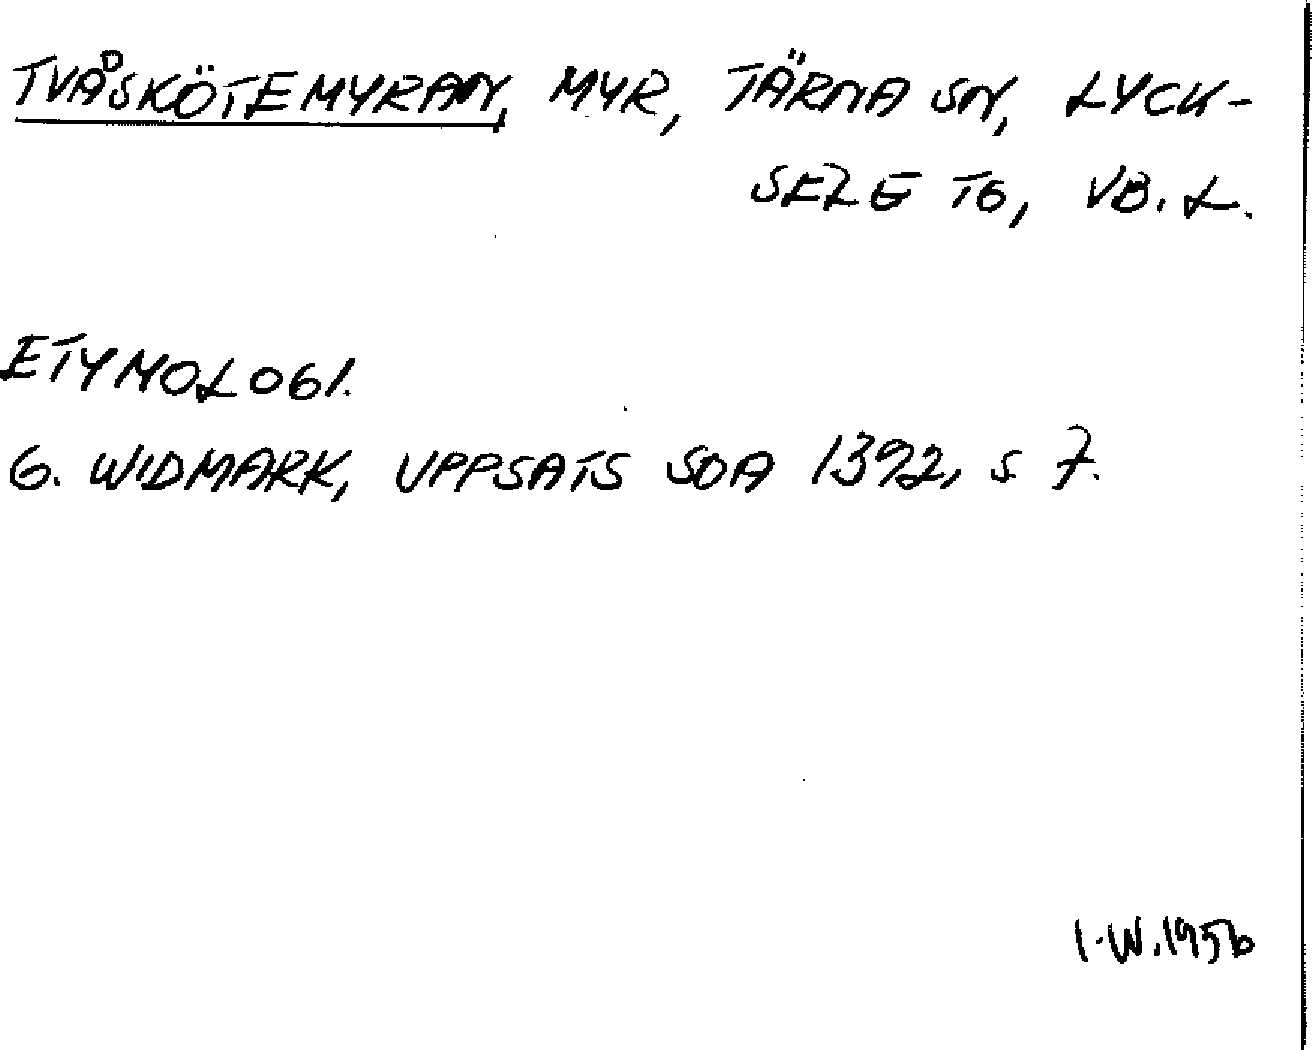 TVÅSKÖTEMYRAN, MYR, TÄRNA SN, LYCK-
SELE TG, VB. L.
ETYMOLOGI.
G. WIDMARK, UPPSATS SOA 1392, S 7.
I.W. 1956